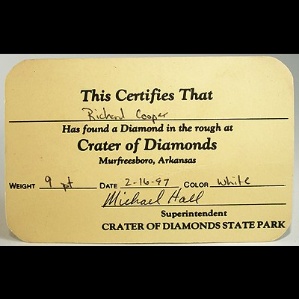 This Certifies That
Richard Cooper
Has found a Diamond in the rough at
Crater of Diamonds
Murfreesboro, Arkansas
WEIGHT 9 pt DATE 2-16-97 COLOR White
Michael Hall
Superintendent
CRATER OF DIAMONDS STATE PARK